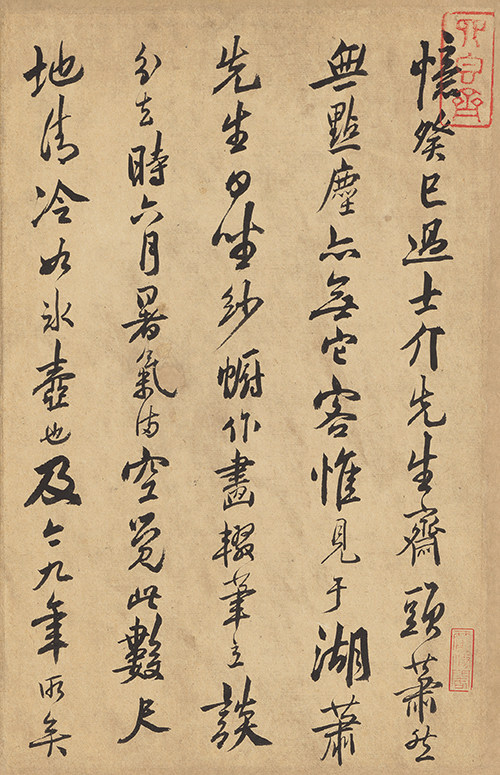 憶癸巳過士介先生齋頭蕭然
無點塵亦無它客惟見于湖蕭
先生日坐紗幮作畫輟筆立談
分去時六月暑氣满空覓此數尺
地清冷如冰壺也及今九年所矣